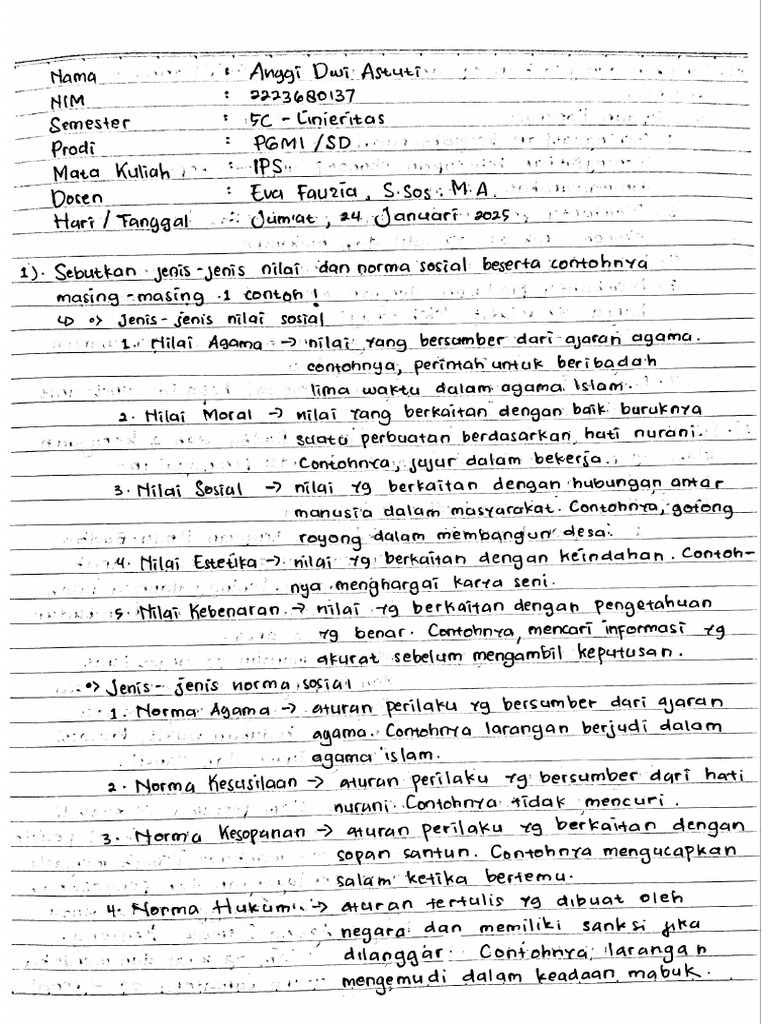 Nama : Anggi Dwi Astuti
NIM : 2223680137
Semester : 5C - Linieritas
Prodi : PGMI /SD
Mata Kuliah : IPS
Dosen : Eva Fauzia, S.Sos. M.A.
Hari / Tanggal : Jum'at, 24 Januari 2025
1). Sebutkan jenis-jenis nilai dan norma sosial beserta contohnya
masing-masing 1 contoh!
↳ •> Jenis-jenis nilai sosial
1. Nilai Agama → nilai yang bersumber dari ajaran agama.
contohnya, perintah untuk beribadah
lima waktu dalam agama Islam.
2. Nilai Moral → nilai yang berkaitan dengan baik buruknya
suatu perbuatan berdasarkan hati nurani.
Contohnya, jujur dalam bekerja.
3. Nilai Sosial → nilai yg berkaitan dengan hubungan antar
manusia dalam masyarakat. Contohnya, gotong
royong dalam membangun desa.
4. Nilai Estetika → nilai yg berkaitan dengan keindahan. Contoh-
nya menghargai karya seni.
5. Nilai Kebenaran → nilai yg berkaitan dengan pengetahuan
yg benar. Contohnya, mencari informasi yg
akurat sebelum mengambil keputusan.
•> Jenis-jenis norma sosial
1. Norma Agama → aturan perilaku yg bersumber dari ajaran
agama. Contohnya larangan berjudi dalam
agama islam.
2. Norma Kesusilaan → aturan perilaku yg bersumber dari hati
nurani. Contohnya tidak mencuri.
3. Norma Kesopanan → aturan perilaku yg berkaitan dengan
sopan santun. Contohnya mengucapkan
salam ketika bertemu.
4. Norma Hukum → aturan tertulis yg dibuat oleh
negara dan memiliki sanksi jika
dilanggar. Contohnya, larangan
mengemudi dalam keadaan mabuk.